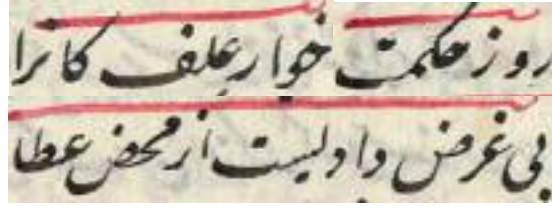 رو ز حکمت خوار علف کانرا
بی غرض دادست از محض عطا